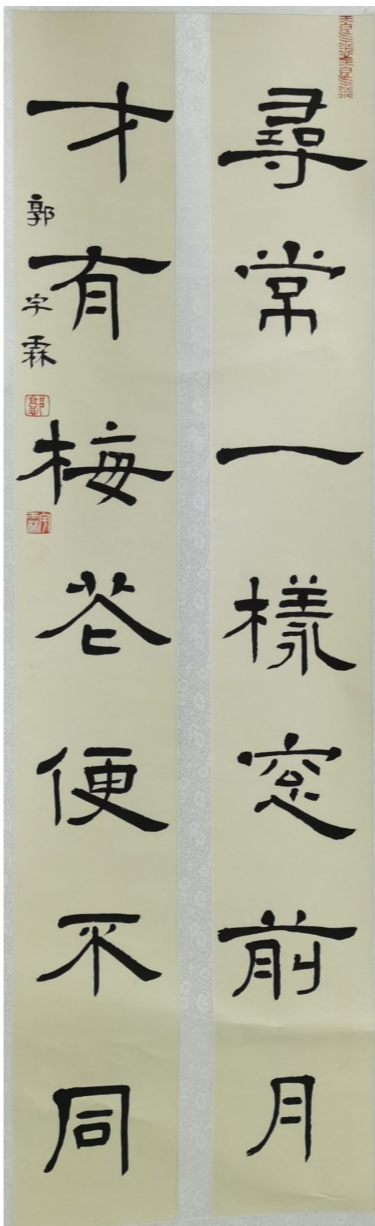 尋常一樣窓前月
才有梅花便不同
郭宇霖